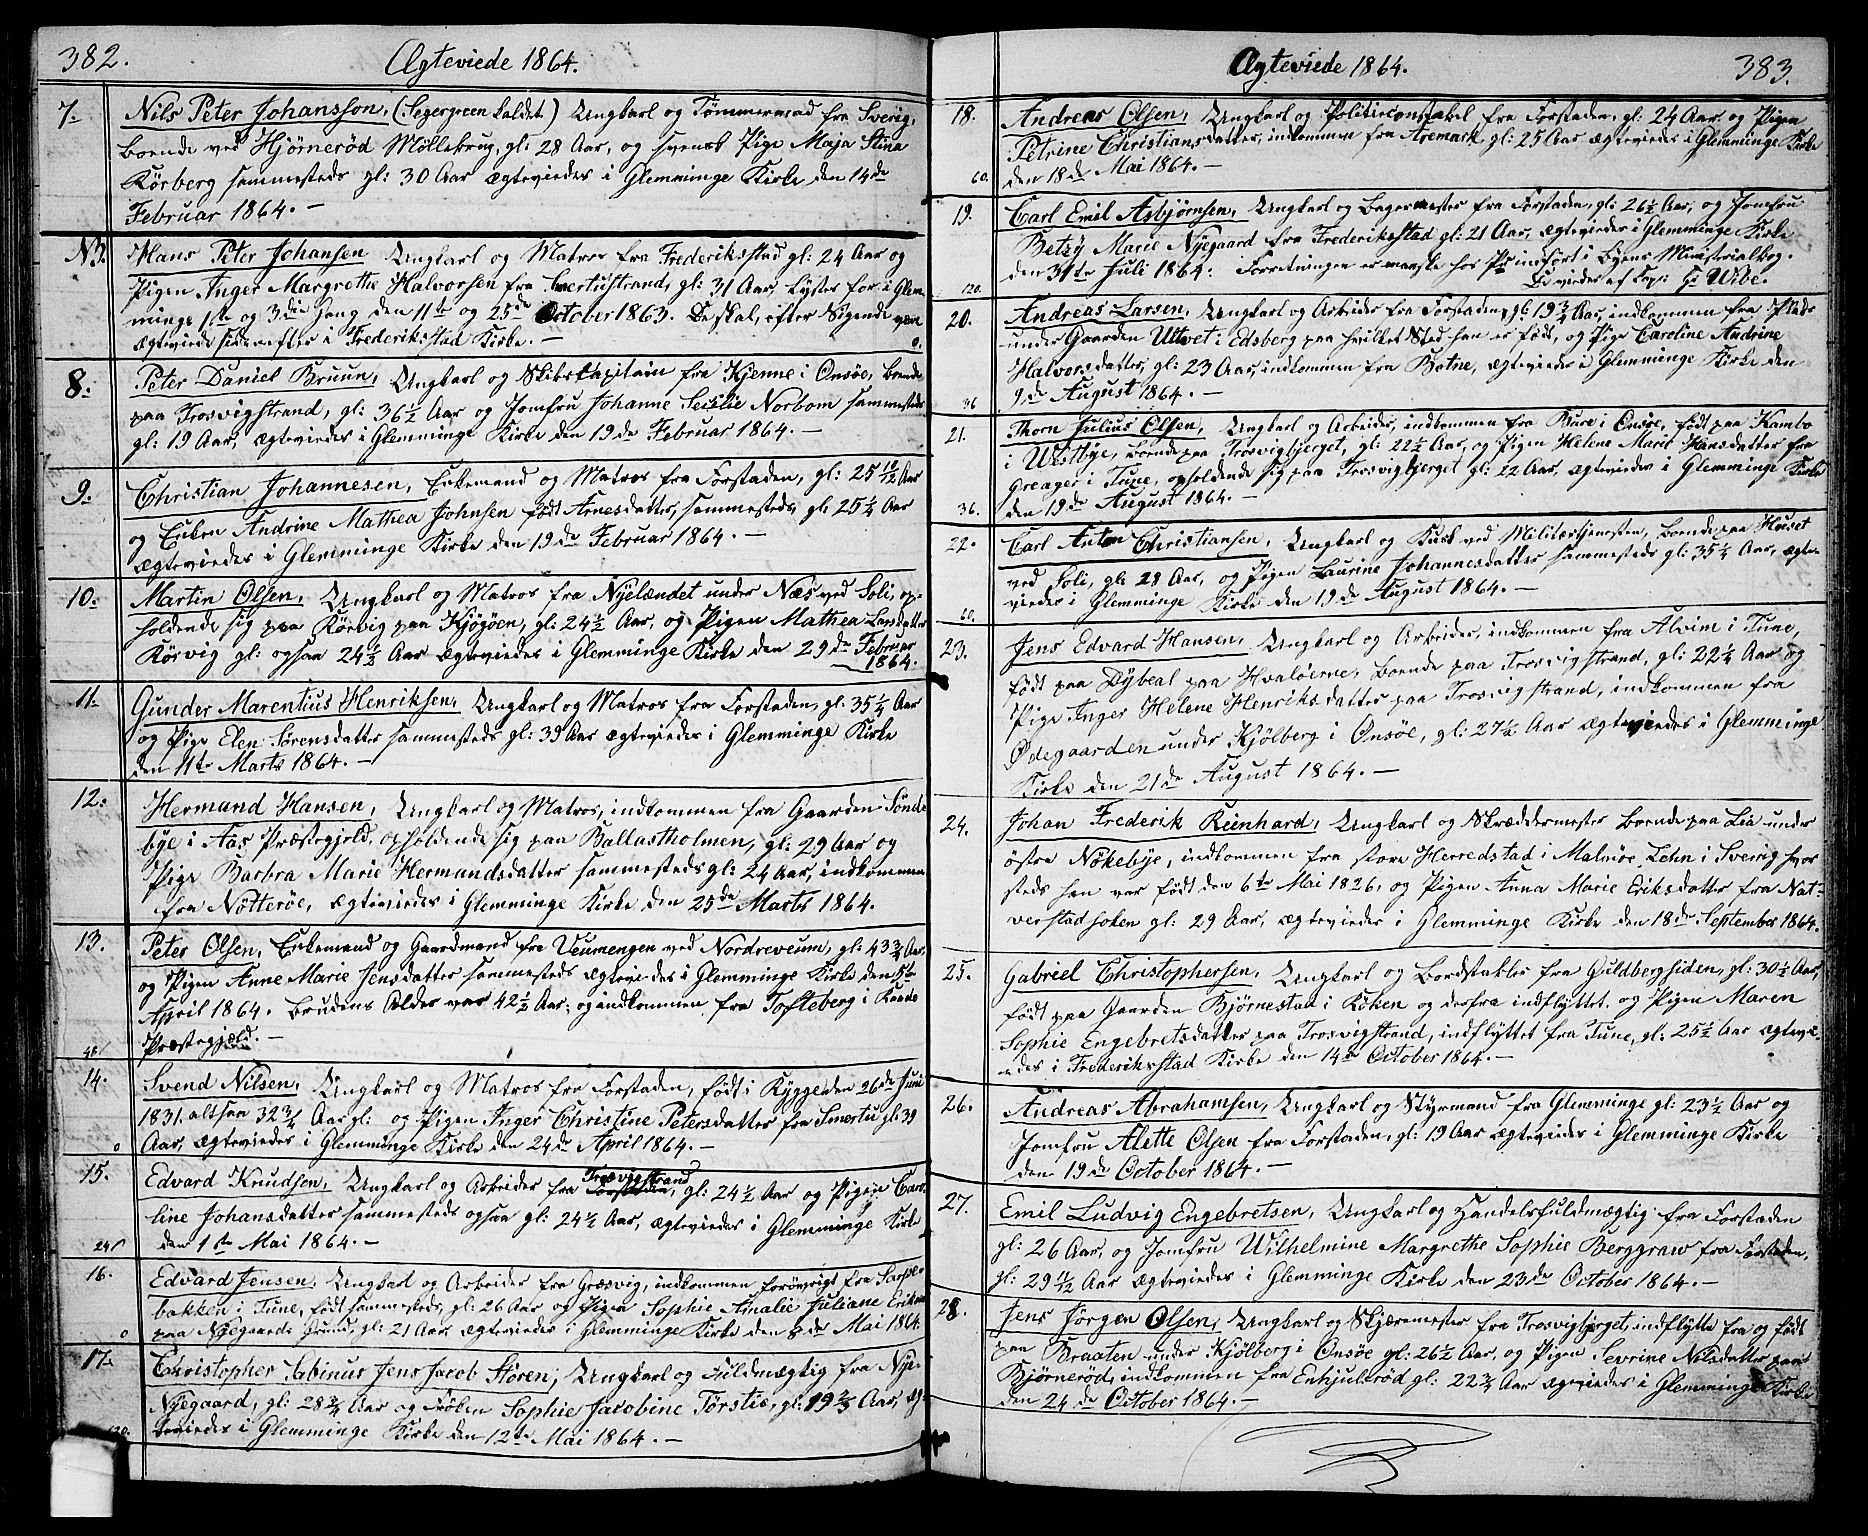 382.
Ægteviede 1864.
7. Nils Peter Johansson, (Segergreen kaldet) Ungkarl og Tømmermand fra Sverig,
boende ved Hjørnerød Møllekrug, gl: 28 Aar, og svensk Pige Maja Stina
Körberg sammesteds gl: 30 Aar ægteviedes i Glemminge Kirke den 14de
Februar 1864. —
N3. Hans Peter Johansen Ungkarl og Matros fra Frederiksstad gl: 24 Aar og
Pigen Inger Margrethe Halvorsen fra Smertustrand, gl: 31 Aar, lyster for i Glem-
minge 1ste og 3die Gang den 11te og 25de October 1863. De skal, efter Sigende være
ægteviede sidenefter i Frederikstad Kirke. — 0.
8. Peter Daniel Bruun, Ungkarl og Skibskapitain fra Kjenne i Onsøe, boende
paa Trosvigstrand, gl: 36½ Aar og Jomfru Johanne Secilie Norbom sammesteds
gl: 19 Aar, ægteviedes i Glemminge Kirke den 19de Februar 1864. —
9. Christian Johannesen, Enkemand og Matros fra Forstaden, gl: 25 10/12 Aar
og Enken Andrine Mathea Johnsen født Arnesdatter, sammesteds, gl: 25¼ Aar
ægteviedes i Glemminge Kirke den 19de Februar 1864. —
10. Martin Olsen, Ungkarl og Matros fra Nyelændet under Næs ved Soli, op-
holdende sig paa Körvig paa Kjøgøen, gl: 24½ Aar, og Pigen Mathea Larsdatter
Körvig gl: ogsaa 24½ Aar ægteviedes i Glemminge Kirke den 29de Februar
1864.
11. Gunder Marentius Henriksen, Ungkarl og Matros fra Forstaden, gl: 35¼ Aar
og Pige Elen Sörensdatter sammesteds gl: 39 Aar ægteviedes i Glemminge Kirke
den 11te Marts 1864. —
12. Hermand Hansen, Ungkarl og Matros, indkommen fra Gaarden Sönde
bye i Aas Præstegjeld, opholdende sig paa Ballastholmen, gl: 29 Aar og
Pige Barbra Marie Hermandsdatter sammesteds gl: 24 Aar, indkommen
fra Nötteröe, ægteviedes i Glemminge Kirke den 25de Marts 1864.
13. Peter Olsen, Enkemand og Gaardmand fra Veumengen ved Nordreveum, gl: 43¾ Aar,
og Pigen Anne Marie Jensdatter sammesteds ægteviedes i Glemminge Kirke den 5te
April 1864. Brudens Alder var 42½ Aar; og indkommen fra Tofteberg i Raade
Præstegjeld. —
48/
14. Svend Nilsen, Ungkarl og Matros fra Forstaden, født i Rygge den 26de Juni
1831. altsaa 32¾ Aar gl: og Pigen Inger Christine Petersdatter fra Smertu gl: 39
0 Aar, ægteviedes i Glemminge Kirke den 24de April 1864. —
15. Edvard Knudsen, Ungkarl og Arbeider fra Trosvigstrand, gl: 24½ Aar og Pigen Caro-
line Johansdatter sammesteds ogsaa gl: 24½ Aar, ægteviedes i Glemminge Kirke
24/ den 1ste Mai 1864. —
16. Edvard Jensen, Ungkarl og Arbeider fra Græsvig, indkommen forøvrigt fra Sarpe-
bakken i Tune, født sammesteds, gl: 26 Aar og Pigen Sophie Amalie Juliane Eriksen
0 paa Nygaards Grund, gl: 21 Aar ægteviedes i Glemminge Kirke den 8de Mai 1864.
17. Christopher Sabinus Jens Jacob Stören, Ungkarl og Fuldmægtig fra Nye-
Nyegaard, gl: 28¾ Aar og Frøken Sophie Jacobine Törstie, gl: 19⅔ Aar, æg-
120. teviedes i Glemminge Kirke den 12te Mai 1864. —
Ægteviede 1864.
383.
18. Andreas Olsen, Ungkarl og Politieconstabel fra Forstaden, gl: 24 Aar og Pigen
Petrine Christiansdatter, indkommen fra Aremark gl: 25 Aar ægteviedes i Glemminge Kirke
60. den 18de Mai 1864. —
19. Carl Emil Asbjørnsen, Ungkarl og Bagermester fra Forstaden, gl: 26½ Aar, og Jomfru
Betzy Marie Nyegaard fra Frederikstad gl: 21 Aar, ægteviedes i Glemminge Kirke
den 31te Juli 1864. Forretningen er indført i Byens Ministerialbog.
120. De viedes af Cap: Wibe.
20. Andreas Larsen, Ungkarl og Arbeider fra Forstaden, gl: 19¾ Aar, indkommen fra Plads
under Gaarden Ultvet i Edsberg paa hvilket Sted han er født, og Pige Caroline Andrine
Halvorsdatter, gl: 23 Aar, indkommen fra Botne, ægteviedes i Glemminge Kirke den
36 9de August 1864. —
21. Thorn Julius Olsen, Ungkarl og Arbeider, indkommen fra Bure i Onsøe, født paa Kambo
i Westbye, boende paa Trosvigbjerget, gl: 22½ Aar, og Pigen Helene Marie Hansdatter fra
Greager i Tune, opholdende sig paa Trosvigbjerget gl: 22 Aar, ægteviedes i Glemminge Kirke
36. den 19de August 1864. —
22. Carl Anton Christiansen, Ungkarl og Kusk ved Militærtjenesten, boende paa Huset
ved Soli, gl: 28 Aar, og Pigen Laurine Johannesdatter sammesteds gl: 35¼ Aar, ægte-
viedes i Glemminge Kirke den 19de August 1864. —
60.
23. Jens Edvard Hansen, Ungkarl og Arbeider, indkommen fra Alvim i Tune,
født paa Dybeal paa Hvaløerne, boende paa Trosvigstrand, gl: 22¼ Aar og
Pige Inger Helene Henriksdatter paa Trosvigstrand, indkommen fra
Ødegaarden under Kjölberg i Onsöe, gl: 27½ Aar ægteviedes i Glemminge
Kirke den 21de August 1864. —
24. Johan Frederik Reinhard, Ungkarl og Skræddermester boende paa Lia under
östre Nökebye, indkommen fra store Herredstad i Malmöe Lehn i Sverig hvor
steds han var født den 6te Mai 1826, og Pigen Anna Marie Eriksdatter fra Nat-
verstadsoken gl: 29 Aar, ægteviedes i Glemminge Kirke den 18de September 1864.
25. Gabriel Christophersen, Ungkarl og Bordstabler fra Guldbergsiden, gl: 30½ Aar,
født paa Gaarden Bjørnestad i Röken og derfra indflyttet og Pigen Maren
Sophie Engebretsdatter paa Trosvigstrand, indflyttet fra Tune, gl: 25½ Aar ægtevi-
edes i Frederikstad Kirke den 14de October 1864. —
26. Andreas Abrahamsen, Ungkarl og Styrmand fra Glemminge gl: 23½ Aar og
Jomfru Alette Olsen fra Forstaden, gl: 19 Aar ægteviedes i Glemminge Kirke
den 19de October 1864. —
27. Emil Ludvig Engebretsen, Ungkarl og Handelsfuldmægtig fra Forstaden
gl: 26 Aar, og Jomfru Wilhelmine Margrethe Sophie Berggraw fra Forstaden,
gl: 29 11/12 Aar ægteviedes i Glemminge Kirke den 23de October 1864. —
28. Jens Jörgen Olsen, Ungkarl og Skjæremester fra Trosvigbjerget, indflytte fra og født
paa Braaten under Kjölberg i Onsöe gl: 26½ Aar, og Pigen Sevrine Nilsdatter paa
Bjørnerød, indkommen fra Enhjulsröd gl: 22¾ Aar ægteviedes i Glemminge Kirke
den 24de October 1864. —